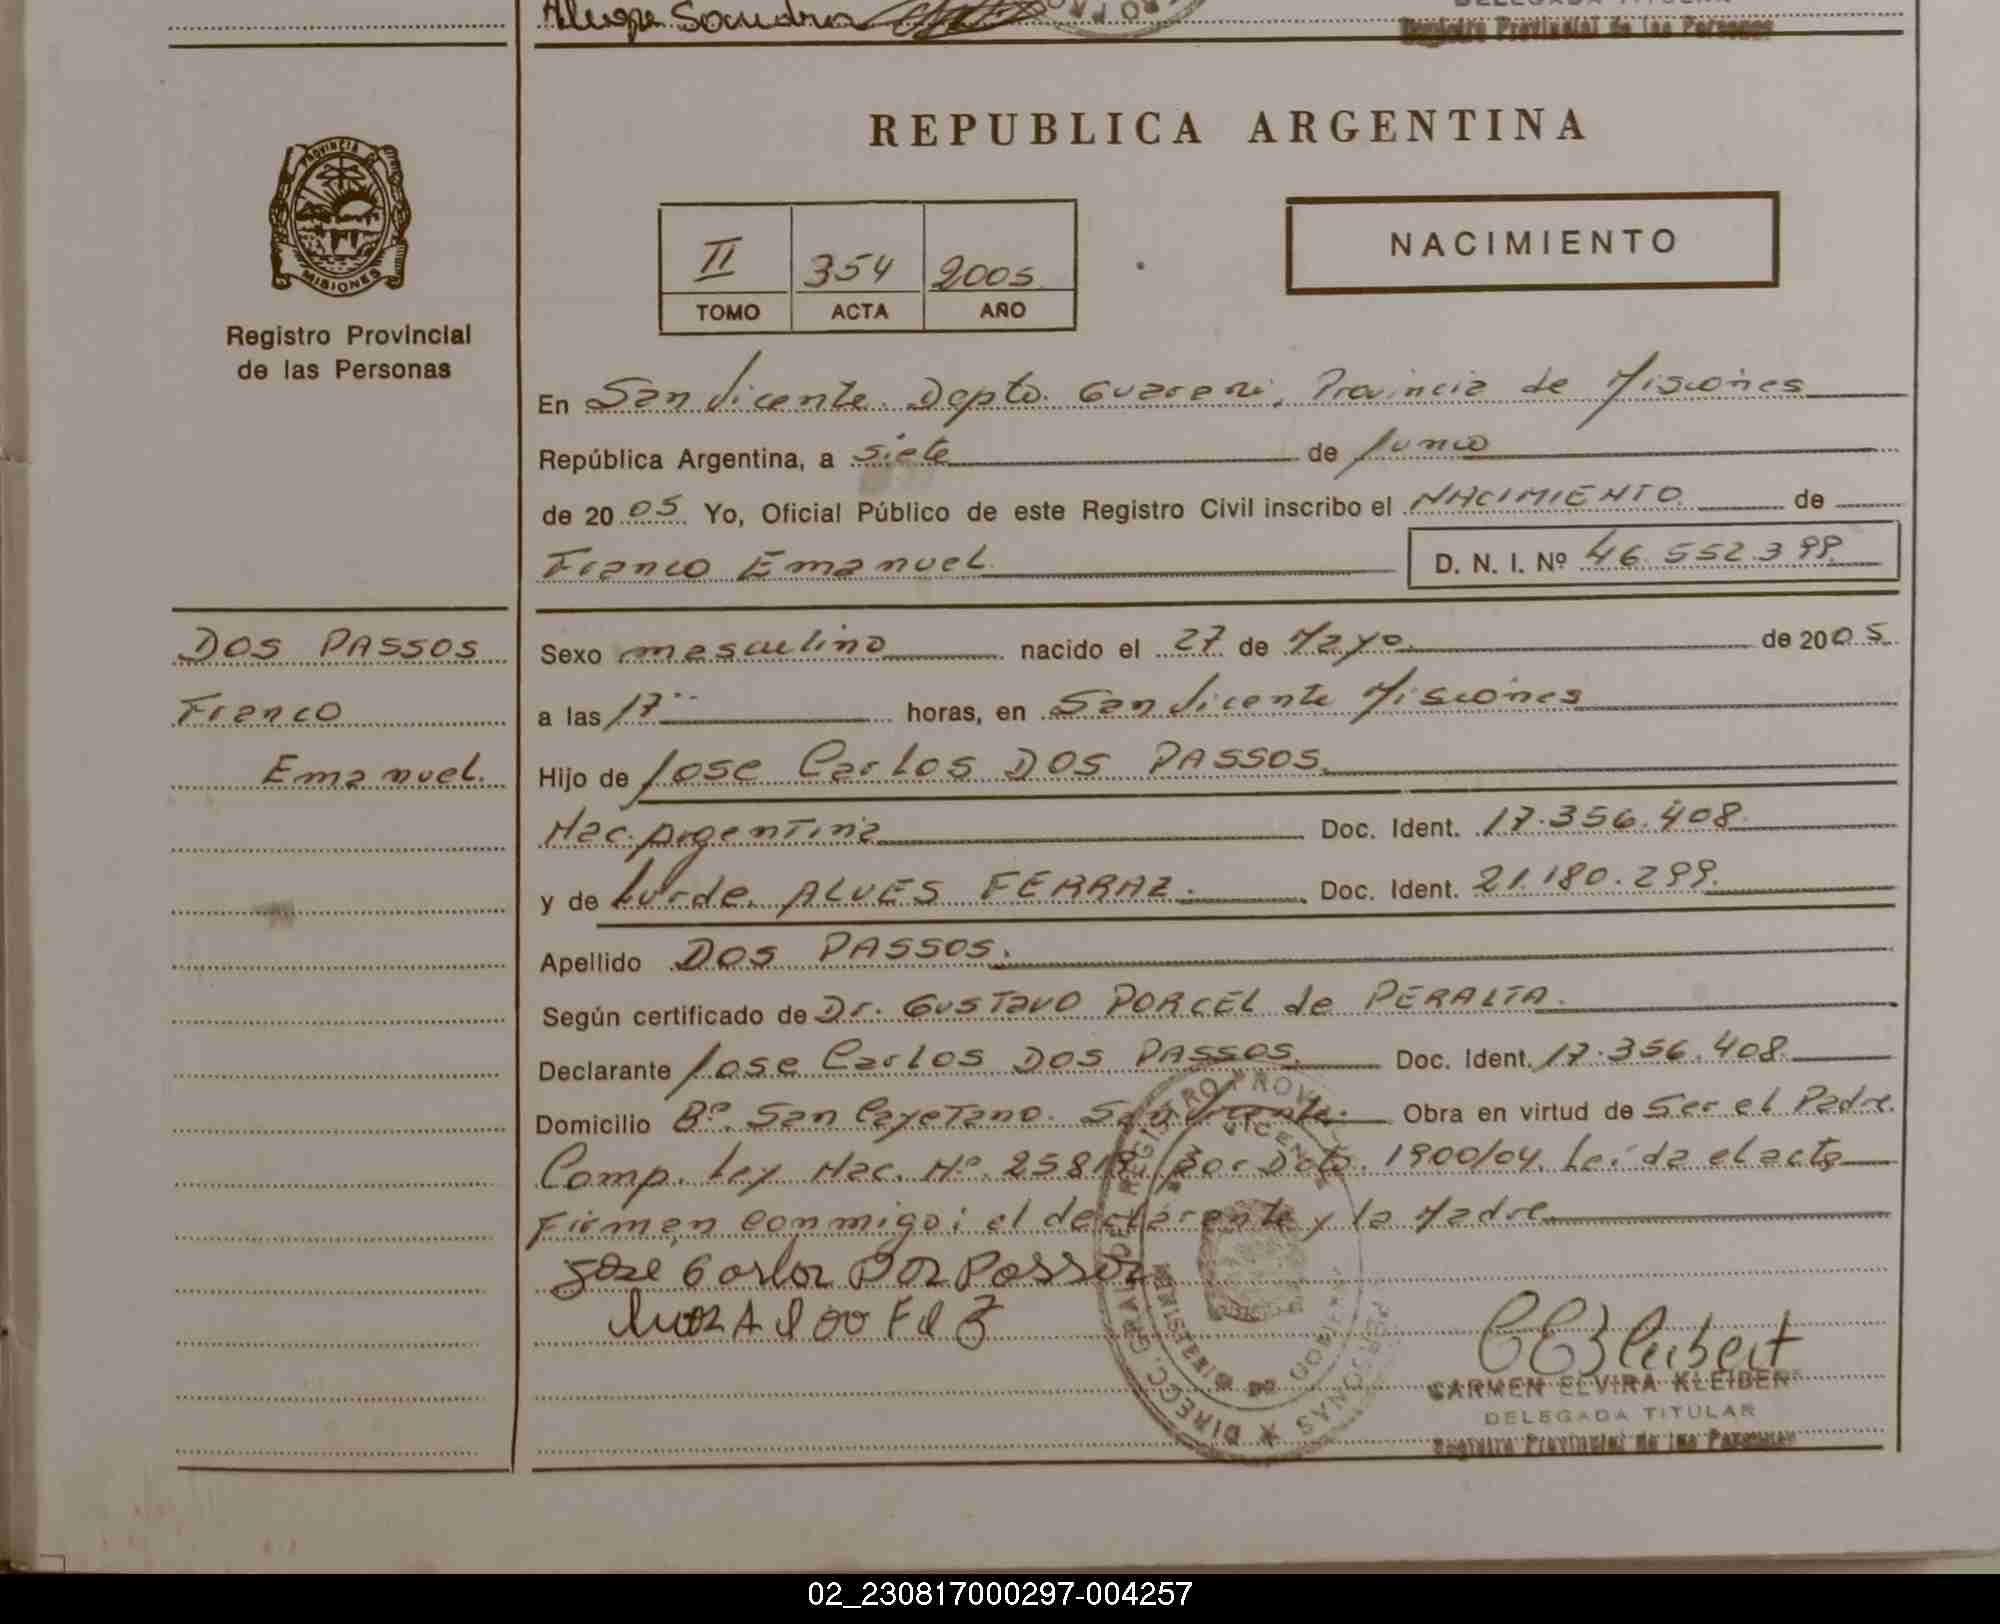 Sandra
Registro Provincial de las Personas
REPUBLICA ARGENTINA
PROVINCIA DE
MISIONES
Registro Provincial
de las Personas
II 354 2005
TOMO ACTA AÑO
NACIMIENTO
En San Vicente. Depto. Guarani, Provincia de Misiones
República Argentina, a siete de Junio
de 2005. Yo, Oficial Público de este Registro Civil inscribo el NACIMIENTO de
Franco Emanuel. D. N. I. Nº 46.552.399.
DOS PASSOS
Franco
Emanuel.
Sexo masculino nacido el 27 de Mayo. de 2005.
a las 17 horas, en San Vicente Misiones
Hijo de Jose Carlos DOS PASSOS.
Nac. Argentina Doc. Ident. 17.356.408.
y de Lurde. ALVES FERRAZ. Doc. Ident. 21.180.299.
Apellido DOS PASSOS.
Según certificado de Dr. GUSTAVO PORCEL de PERALTA.
Declarante Jose Carlos DOS PASSOS. Doc. Ident. 17.356.408.
Domicilio Bº. San Cayetano. San Vicente. Obra en virtud de Ser el Padre.
Comp. Ley Nac. Nº. 25819, por Dcto. 1900/04. Leída el acta
Firman conmigo: el declarante y la Madre
José Carlos Dos Passos
CARMEN ELVIRA KLEIBERT
DELEGADA TITULAR
Registro Provincial de las Personas
02_230817000297-004257